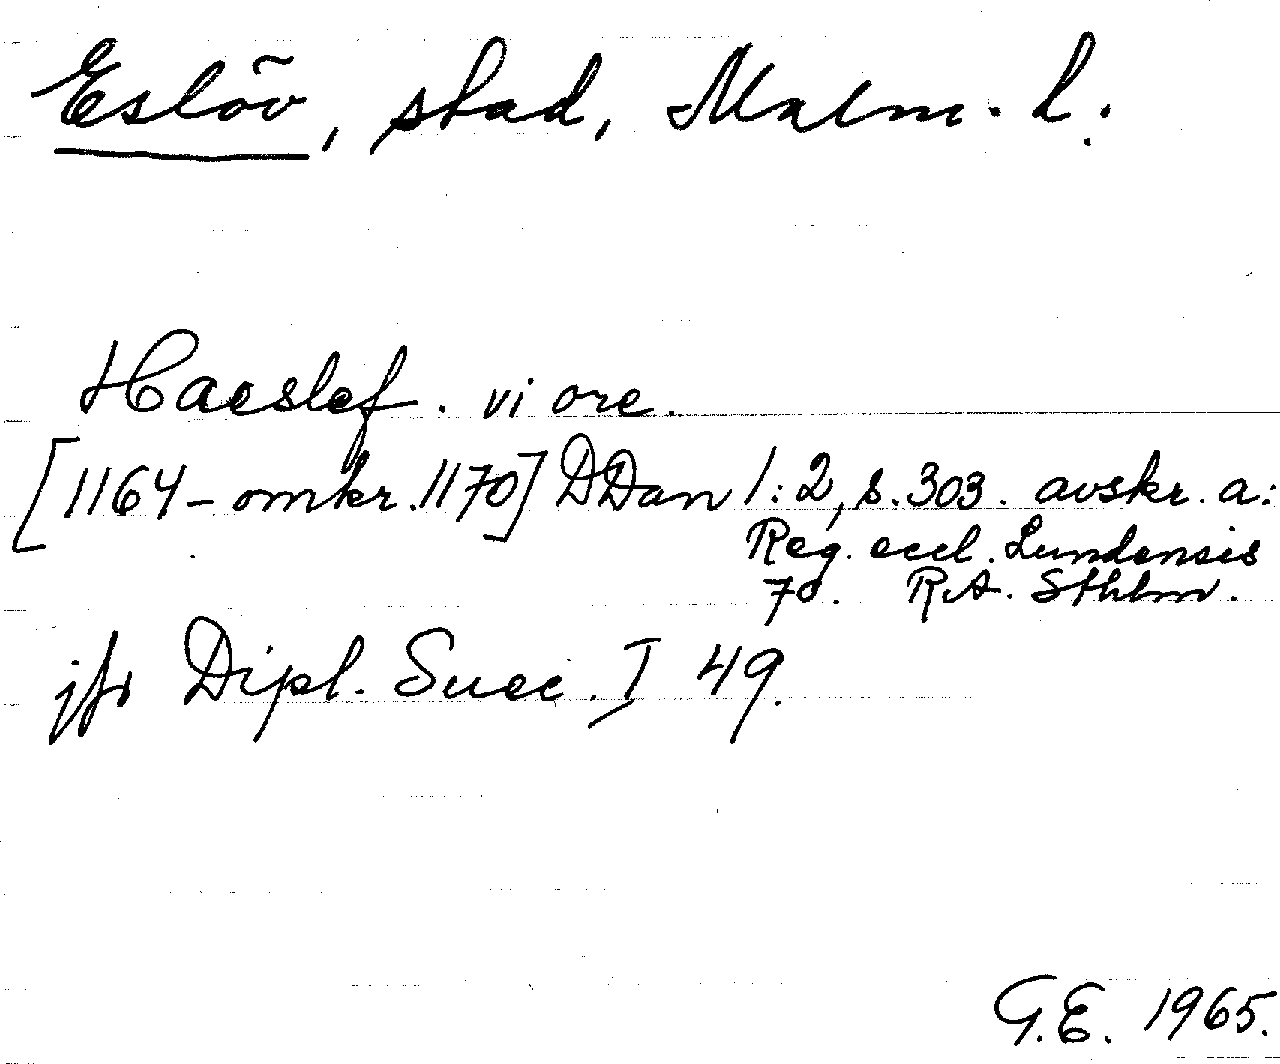 Eslöv, stad, Malm. l.
Haeslef. vi ore.
[1164-omkr. 1170] DDan 1:2, s. 303. avskr. a:
Reg. eccl. Lundensis
70. RA. Sthlm.
jfr Dipl. Suec. I 49.
G.E. 1965.